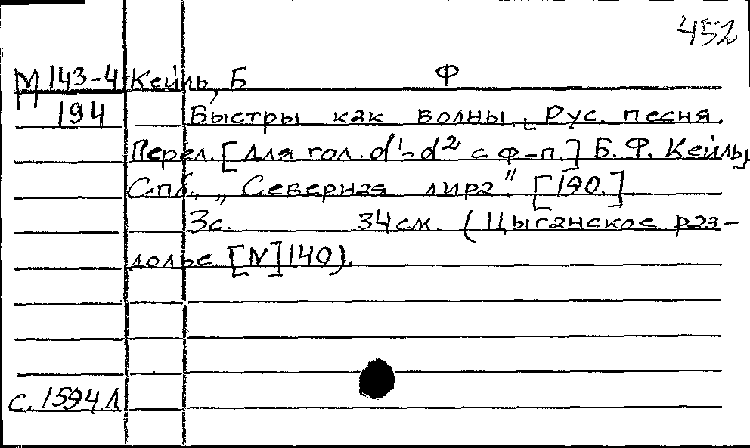 452
М 143-4 Кейль, Б Ф
194 Быстры как волны. Рус. песня.
Перел. [для гол. d¹-d² с ф-п.] Б. Ф. Кейль,
Спб., „Северная лира". [190.]
3с. 34см. (Цыганское раз-
долье [N] 140).
с. 1594 Л